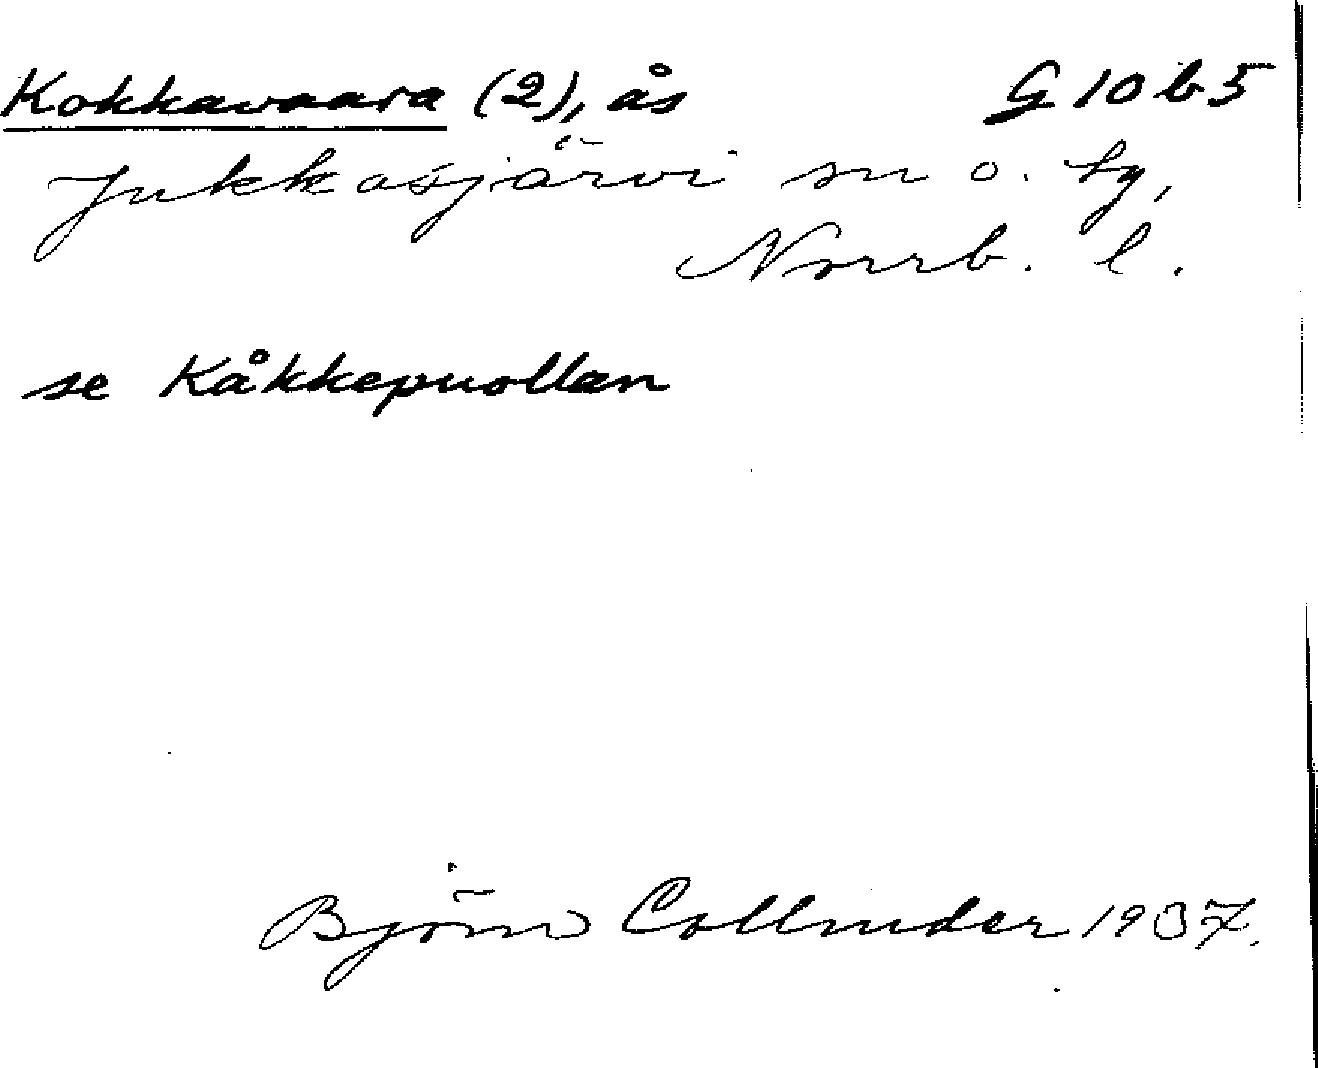 Kokkavaara (2), ås G 10 b 5
Jukkasjärvi sn o. tg,
Norrb. l.
se Kåkkepuollan
Björn Collinder 1937.